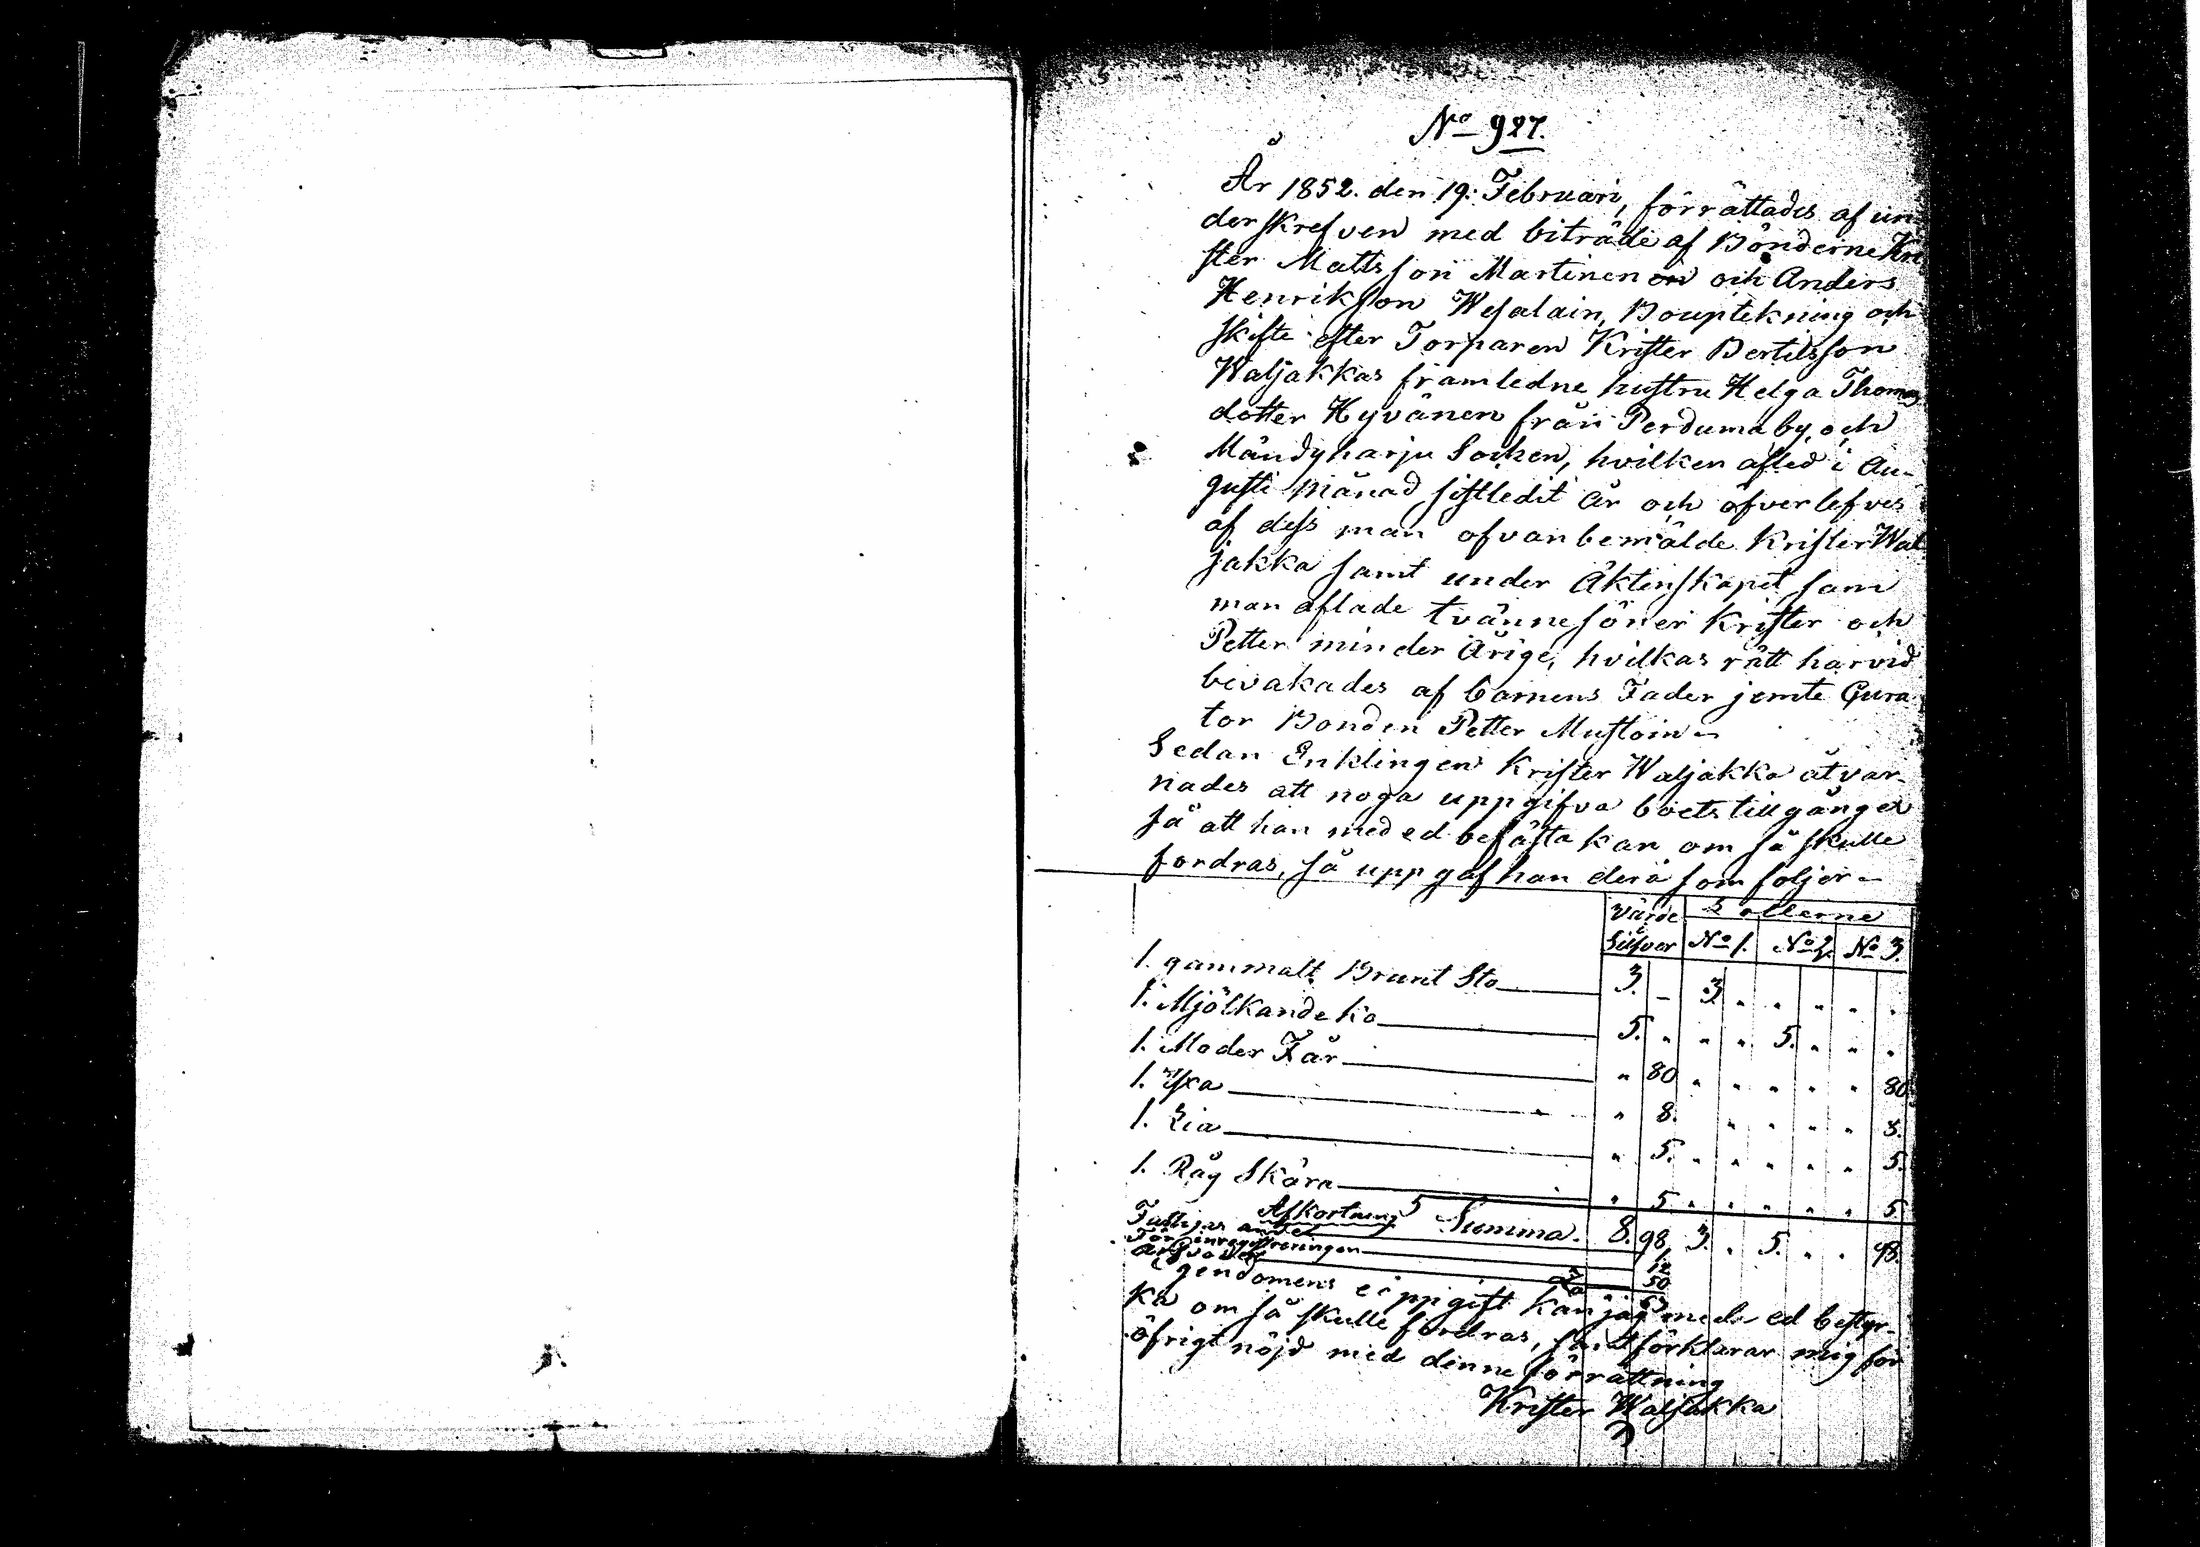 No 927.
År 1852. den 19: Februari, förrättades af un-
derskrefven med biträde af Bönderne Kri-
ster Mattsson Martinen och Anders
Henriksson Wesalain, Bouptekning och
skifte efter Torparen Krister Bertilsson
Waljakkas framledne hustru Helga Thomas
dotter Hyvänen från Perduma by och
Mändyharju Socken, hvilken afled i Au-
gusti månad sistledit år och öfverlefves
af dess man ofvanbemälde Krister Wal
jakka samt under Äktenskapet sam
man aflade tvänne söner Krister och
Petter minder Årige, hvilkas rätt härvid
bevakades af barnens Fader jemte Cura
tor Bonden Petter Mustoin
Sedan Enklingen Krister Waljakka åtvar-
nades att noga uppgifva boets tillgångar
så att han med ed befästa kan om så skulle
fordras, så uppgaf han derå som följer
Värde Lotterne
Silfver No 1. No 2. No 3.
1. gammalt Brunt Sto 3. - 3. " " " " "
1. Mjölkande Ko 5. " " " 5. " " "
1. Moder Får " 80 " " " " " 80.
1. Yxa " 8. " " " " 8.
1. Lia " 5. " " " " " 5.
1. Råg Skära " 5. " " " " " 5.
Afkortning Summa. 8. 98 3. " 5. " " 98.
Fattigas andel 12
För inregistreringen 50
Arfvode
gendomens uppgift kan jag med ed bestyr-
ka om så skulle fordras, samt förklarar mig för
öfrigt nöjd med denne förrättning
Krister Waljakka